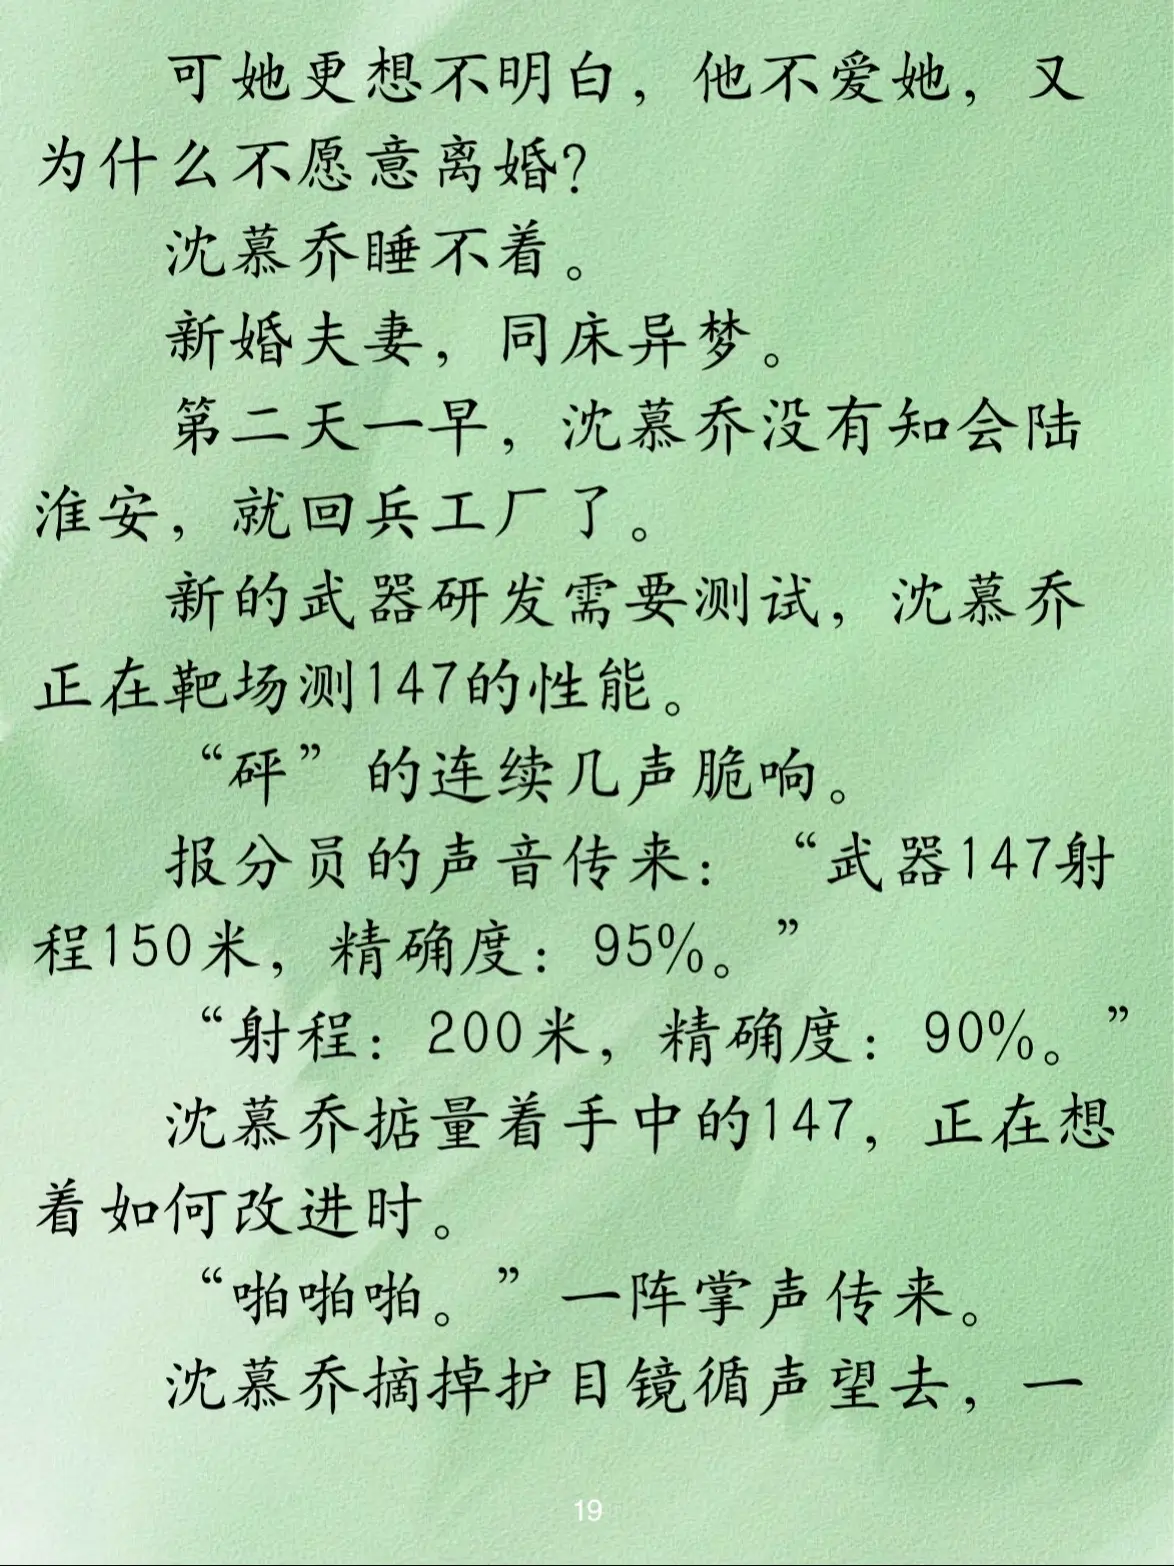 可她更想不明白，他不爱她，又
为什么不愿意离婚？
沈慕乔睡不着。
新婚夫妻，同床异梦。
第二天一早，沈慕乔没有知会陆
淮安，就回兵工厂了。
新的武器研发需要测试，沈慕乔
正在靶场测147的性能。
“砰”的连续几声脆响。
报分员的声音传来：“武器147射
程150米，精确度：95%。”
“射程：200米，精确度：90%。”
沈慕乔掂量着手中的147，正在想
着如何改进时。
“啪啪啪。”一阵掌声传来。
沈慕乔摘掉护目镜循声望去，一
19